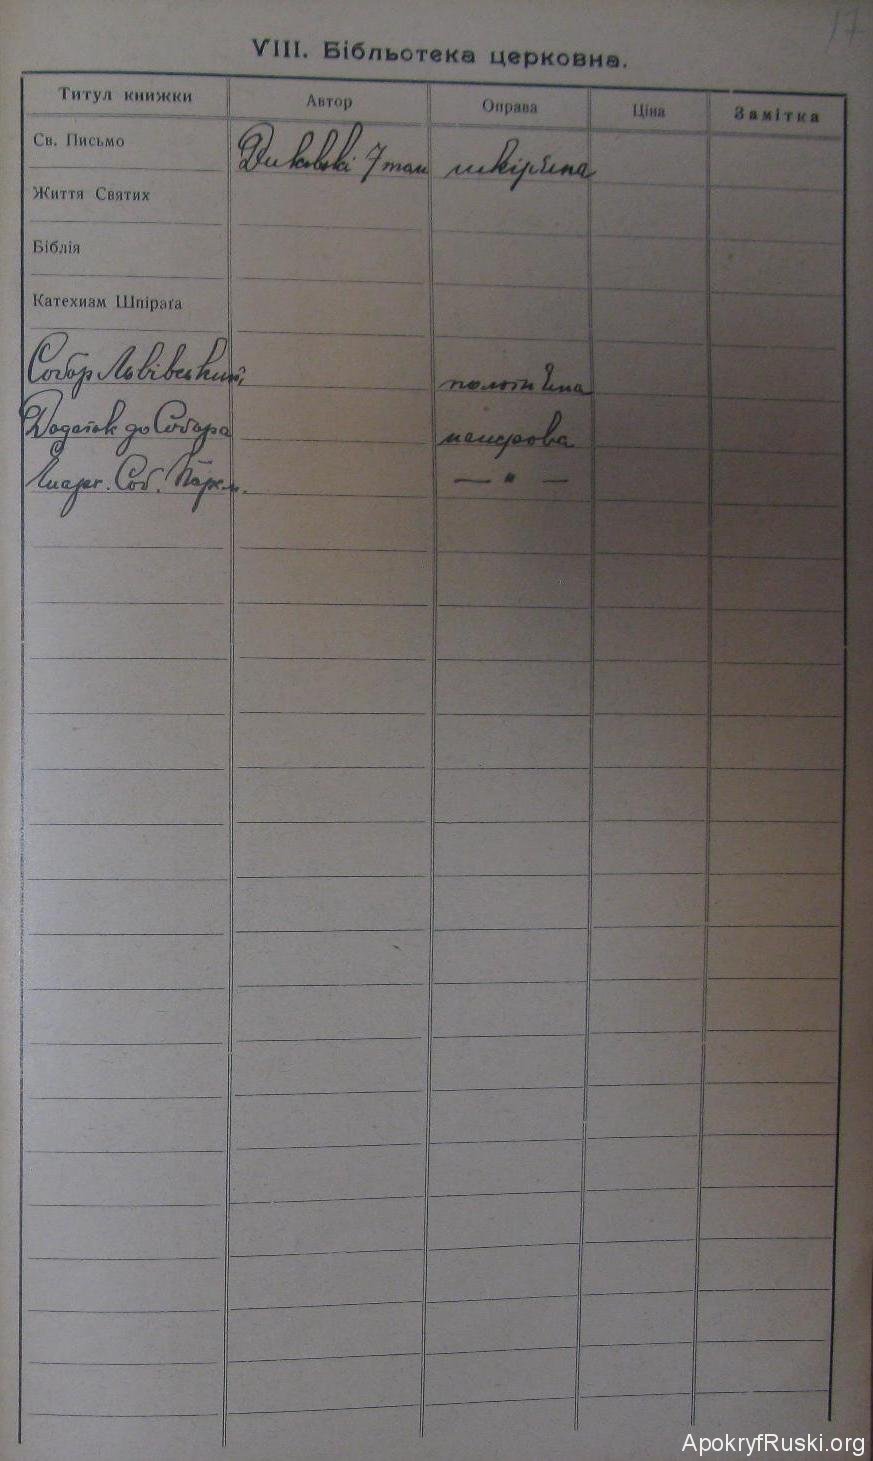 17
VIII. Бібльотека церковна.
Титул книжки Автор Оправа Ціна Замітка
Св. Письмо 7 том шкіряна
Життя Святих
Біблія
Катехизм Шпіраґа
Собор Львівський полотняна
Додаток до Собора паперова
Соб. — " —
ApokryfRuski.org